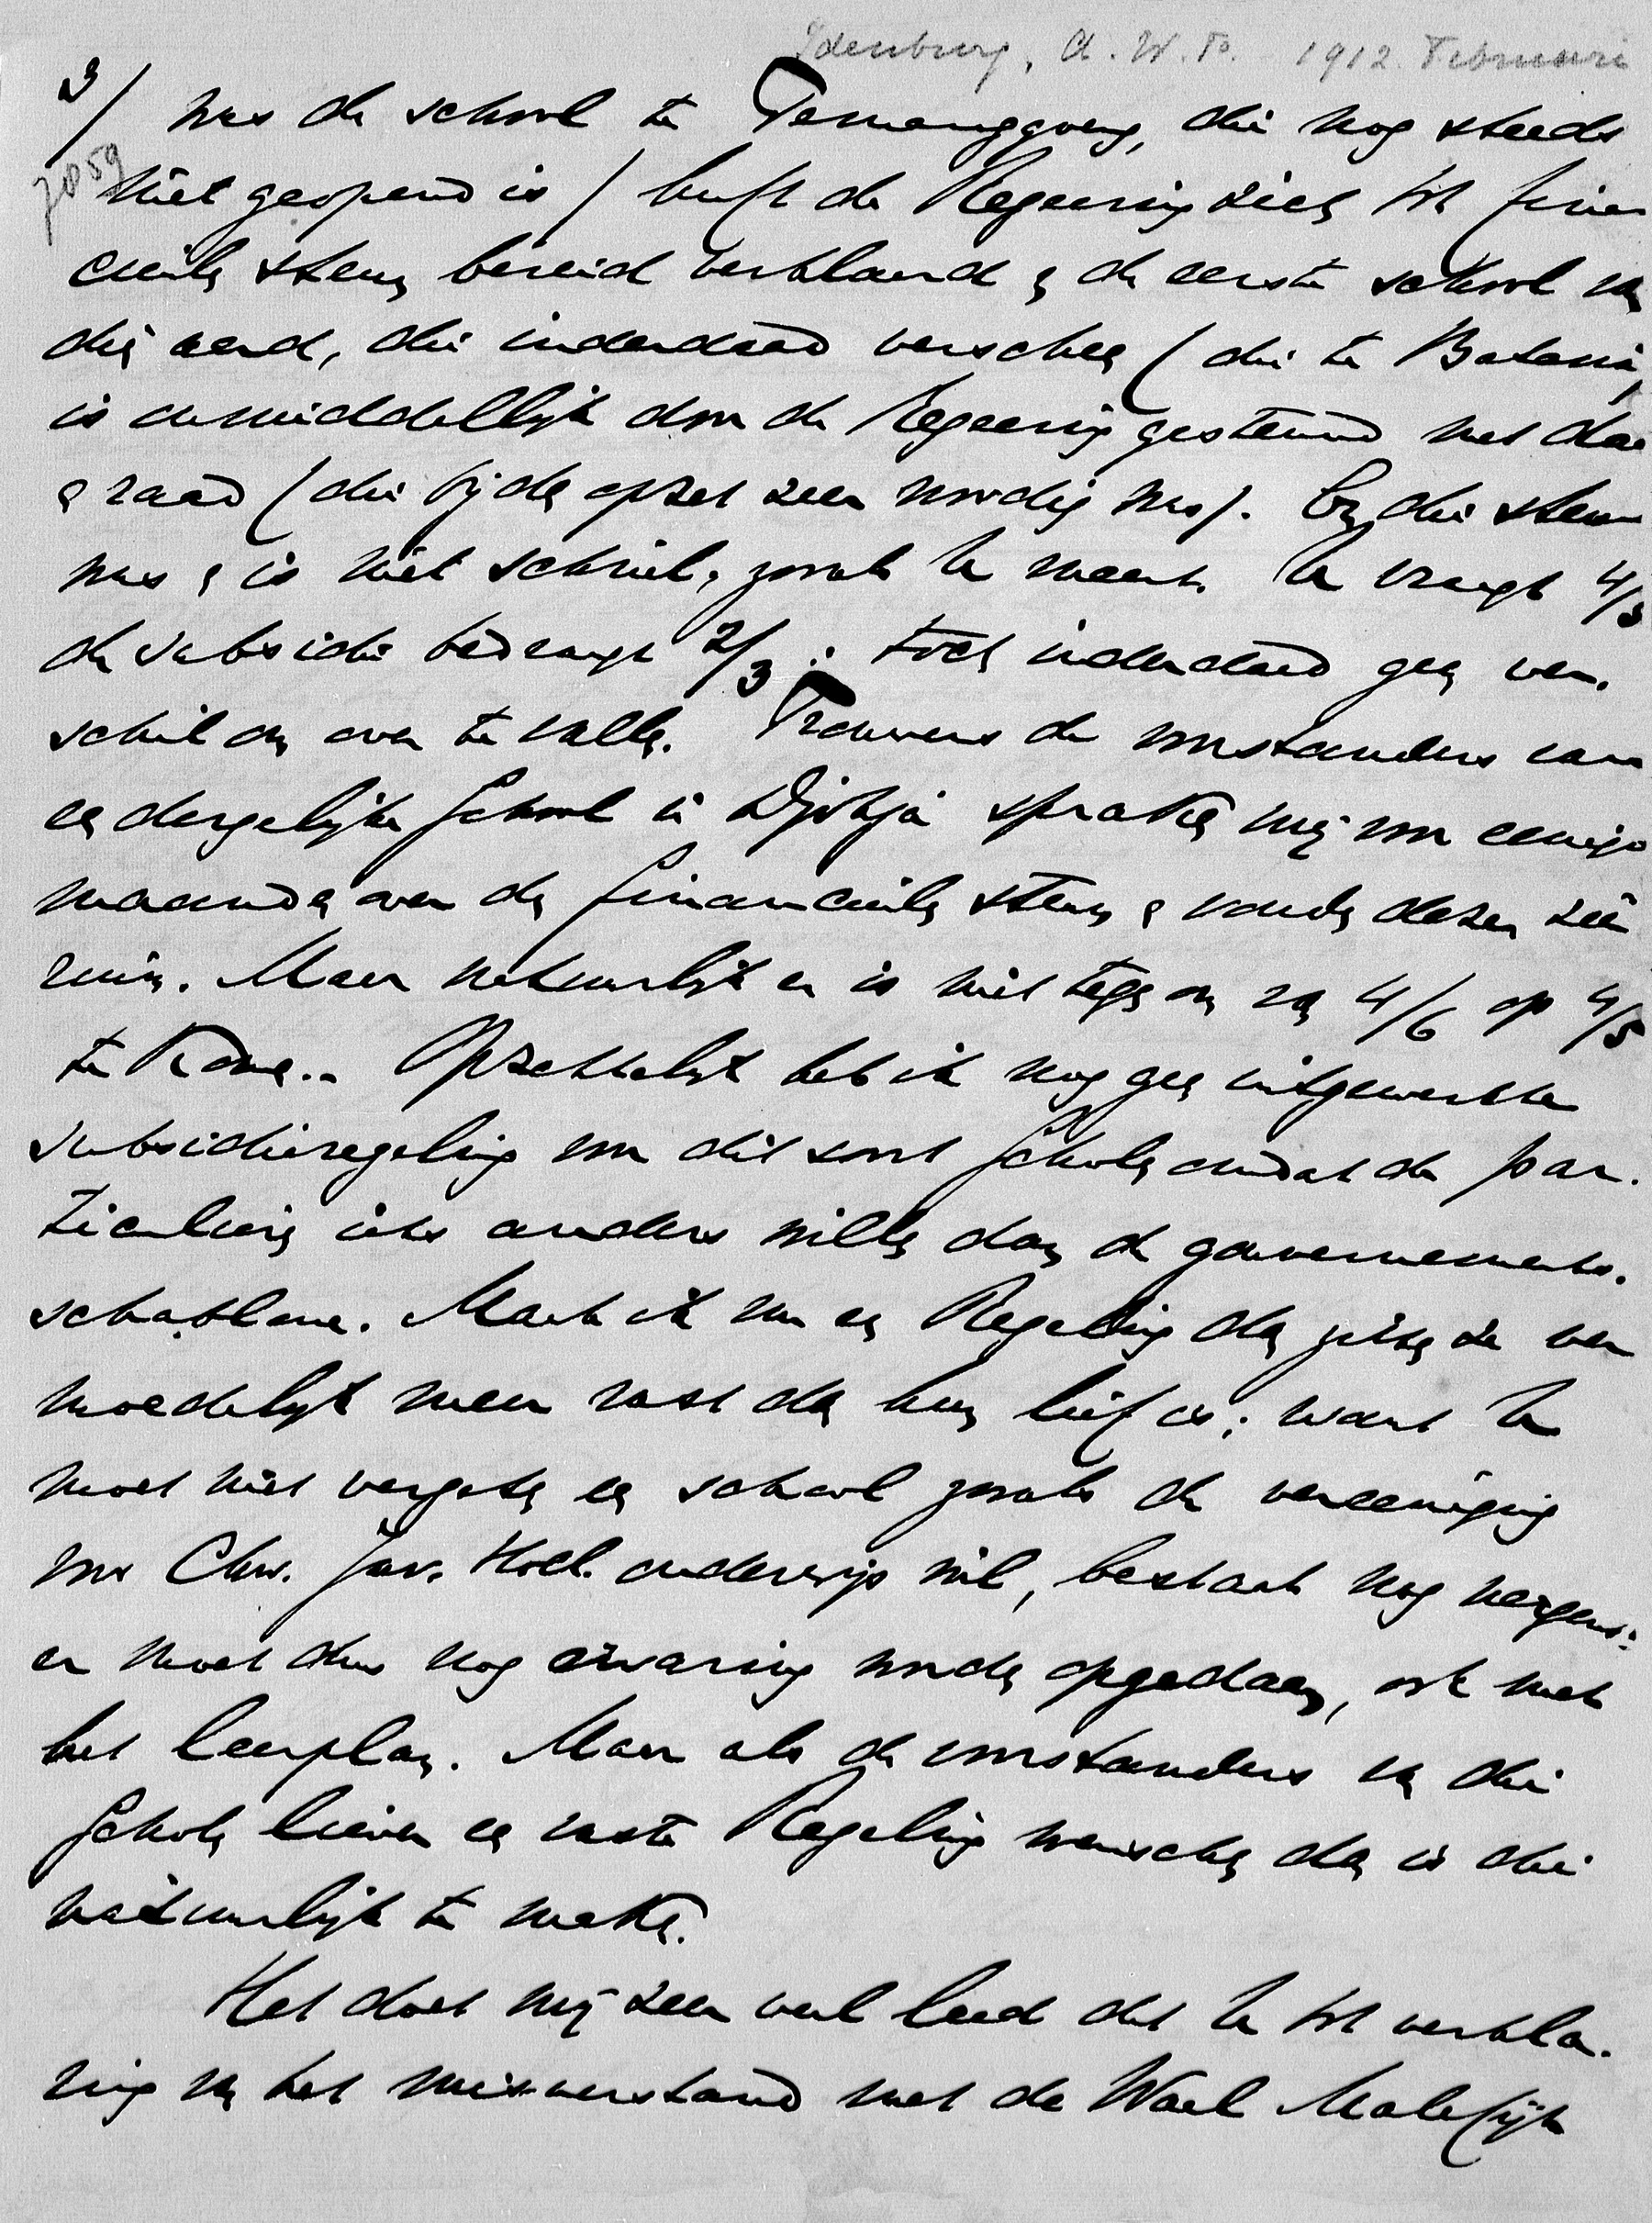 Idenburg, A.W.F. 1912 Februari
3/ voor de school te Temanggoeng, die nog steeds
7859
niet geopend is / heeft de Regeering zich tot finan
cieele steun bereid verklaard & de eerste school van
die aard, die inderdaad verscheen (die te Batavia,
is onmiddellijk door de Regeering gesteund met daad
& raad (die bij den opzet zeer noodig was). En die steun
was & is niet schriel, zooals U meent. U vraagt 4/5
de subsidie bedraagt 2/3: toch inderdaad geen ver-
schil om over te vallen. Trouwens de voorstanders van
een dergelijke school in Djokja spraken mij voor eenige
maanden over den financieele steun & vonden dezen zéér
ruim. Maar natuurlijk er is niet tegen om van 4/6 op 4/5
te komen.. Opzettelijk heb ik nog geen uitgewerkte
subsidieregeling voor dit soort scholen omdat de par-
ticulieren iets anders willen dan de gouvernements-
schablone. Maak ik nu een Regeling dan zitten ze ver
moedelijk meer vast dan hun lief is; want U
moet niet vergeten een school zooals de vereeniging
voor Chr. Jav. Holl. onderwijs wil, bestaat nog nergens:
er moet dus nog ervaring worden opgedaan, ook met
het leerplan. Maar als de voorstanders van die
scholen liever een vaste Regeling wenschen dan is die
natuurlijk te maken.
Het doet mij zeer veel leed dat U tot verkla-
ring van het misverstand met de Waal Malefijt